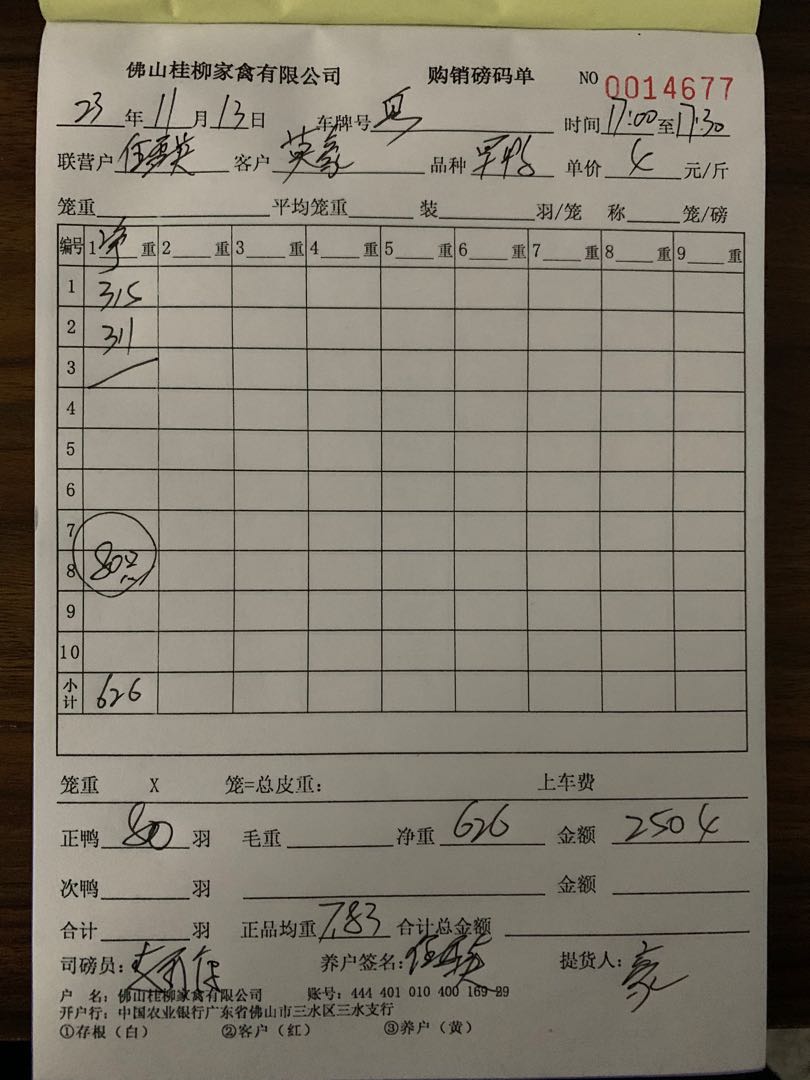 佛山桂柳家禽有限公司 购销磅码单 NO 0014677
23年11月13日 车牌号 时间17:00至17:30
联营户 客户 英豪 品种 单价 4 元/斤
笼重 平均笼重 装 羽/笼 称 笼/磅
编号 1 净 重 2 重 3 重 4 重 5 重 6 重 7 重 8 重 9 重
1 315
2 311
3
4
5
6
7
8 80只
9
10
小计 626
笼重 X 笼=总皮重: 上车费
正鸭 80 羽 毛重 净重 626 金额 2504
次鸭 羽 金额
合计 羽 正品均重 7.83 合计总金额
司磅员: 养户签名: 提货人: 豪
户 名: 佛山桂柳家禽有限公司 账号: 444 401 010 400 169 29
开户行: 中国农业银行广东省佛山市三水区三水支行
①存根(白) ②客户(红) ③养户(黄)